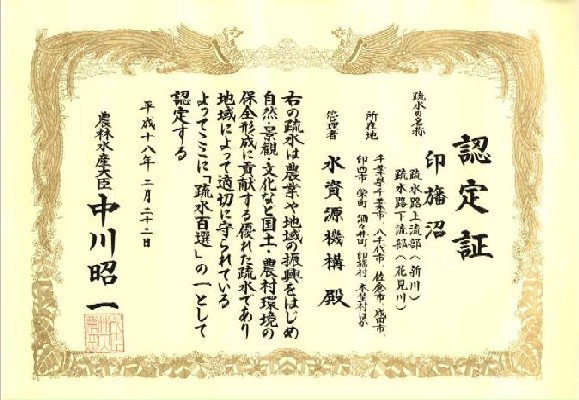 認定証
疏水の名称
印旛沼
疏水路上流部(新川)
疏水路下流部(花見川)
所在地
千葉県千葉市、八千代市、佐倉市、成田市、
印西市、栄町、酒々井町、印旛村、本埜村ほか
管理者
水資源機構 殿
右の疏水は農業や地域の振興をはじめ
自然・景観・文化など国土・農村環境の
保全形成に貢献する優れた疏水であり
地域によって適切に守られている
よってここに「疏水百選」の一として
認定する
平成十八年二月二十二日
農林水産大臣 中川昭一